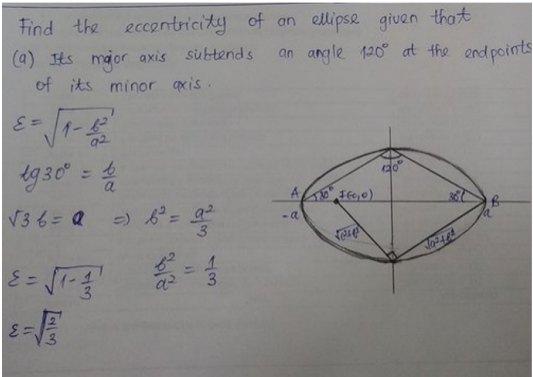 Find the eccentricity of an ellipse given that
(a) Its major axis subtends an angle 120° at the endpoints
of its minor axis.
ε = √(1 - b²/a²)
tg30° = b/a
√3 b = a ⇒ b² = a²/3
ε = √(1 - 1/3) b²/a² = 1/3
ε = √(2/3)
120°
A 30° 30° B
-a a
√(a²+b²)